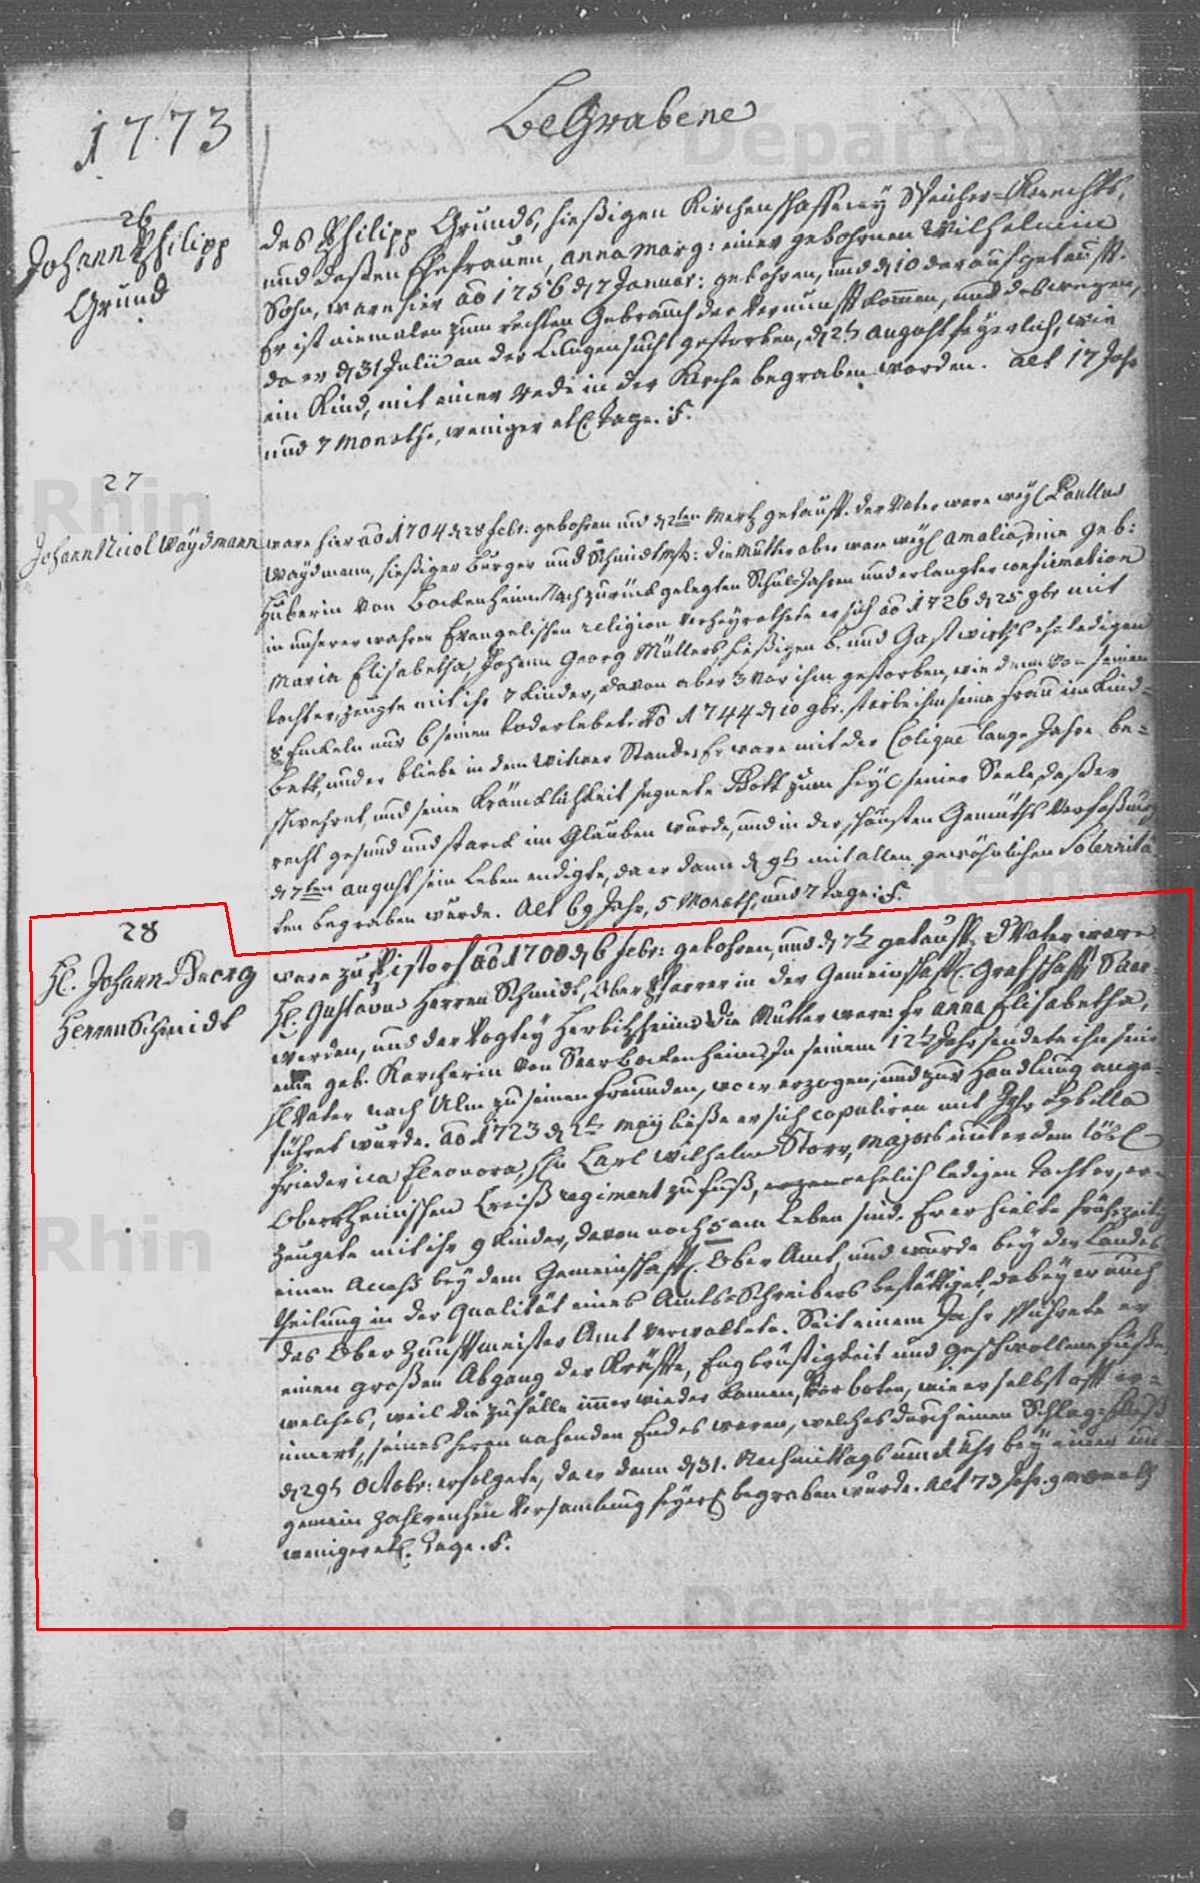 1773
BeGrabene
26
Johann Philipp
Grund
des Philipp Grunds, hießigen Kirchenschaffeney Speicher-Knechts,
und deßen Ehefrauen, Anna Marg: einer gebohrnen Wilhelmin
Sohn, ware hier ao 1756 d 7 Januar: gebohren, und d 10 darauf getaufft.
Er ist niemalen zum rechten Gebrauch der Vernunfft kommen, und deßwegen,
da er d 31 Julii an der Lungensucht gestorben, d 2t August feyerlich, wie
ein Kind, mit einer Rede in der Kirche begraben worden. Alt 17 Jahr
und 7 Monathe, weniger etl. Tage. S.
27
Johann Nicol Waydmann
ware hier ao 1704 d 28 Febr: gebohren und d 2ten Mertz getaufft. der Vater ware weyl Paullus
Waydmann, hießiger Burger und Schmidtmstr: die Mutter aber ware weyl Amalia, eine geb:
Huberin von Bockenheim. Nach zurück gelegten Schul-Jahren und erlangter confirmation
in unserer wahren Evangelischen religion verheyrathete er sich ao 1726 d 25 9br mit
Maria Elisabetha, Johann Georg Müllers, hießigen b. und Gastwirths ehl. ledigen
Tochter, zeugte mit ihr 7 Kinder, davon aber 3 vor ihm gestorben, wie denn von seinen
8 Enckeln nur 6 seinen Tod erlebet. Ao 1744 d 10 9br. starbe ihm seine Frau im Kind-
bett, und er bliebe in dem Witwer Stande. Er ware mit der Colique lange Jahre be-
schwehret, und seine Kräncklichkeit segnete Gott zum Heyl seiner Seele, daß er
recht gesund und starck im Glauben wurde, und in der schönsten Gemüths Verfaßung
d 7ten August sein Leben endigte, da er dann d 9t mit allen gewöhnlichen Solennitä-
ten begraben wurde. Alt 69 Jahr, 5 Monath, und 7 Tage. S.
28
H. Johann Georg
HerrenSchmidt
ware zu Pistorf ao 1700 d 6 Febr: gebohren, und d 7t getaufft. d Vater ware
H. Gustavus HerrenSchmidt, Ober Pfarrer in der Gemeinschafftl. Grafschafft Saar-
werden, und der Vogtey Herbitzheim. Die Mutter ware: Fr Anna Elisabetha,
eine geb. Karcherin von Saar Bockenheim. In seinem 12t Jahr sendete ihn sein
H. Vater nach Ulm zu seinen Freunden, wo er erzogen, und zur Handlung ange-
führet wurde. Ao 1723 d 2t May ließe er sich copuliren mit Jgfr Sybilla
Friederica Eleonora, Hn Carl Wilhelm Storr, Majors unter dem löbl
OberRheinischen Creiß regiment zu Fuß, ehelich ledigen Tochter, er-
zeugete mit ihr 9 Kinder, davon noch 5 am Leben sind. Er erhielte frühzeitig
einen Access bey dem Gemeinschafftl. Ober Amt, und wurde bey der Landes
theilung in der Qualität eines Amts-Schreibers bestättiget, dabey er auch
des Ober Zunfftmeister Amt verwaltete. Seit einem Jahr spührete er
einen großen Abgang der Kräffte, Engbrüstigkeit und geschwollene Füße,
welches, weil die Zufälle immer wieder kamen, Vorboten, wie er selbst offt er-
innert, seines heran nahenden Endes waren, welches durch einen Schlag-Fluß
d 29t Octobr: erfolgete, da er dann d 31. Nachmittags um 1 Uhr bey einer un-
gemein zahlreichen Versamlung feyerl begraben wurde. Alt 73 Jahr. 9 Monath
weniger etl. Tage. S.